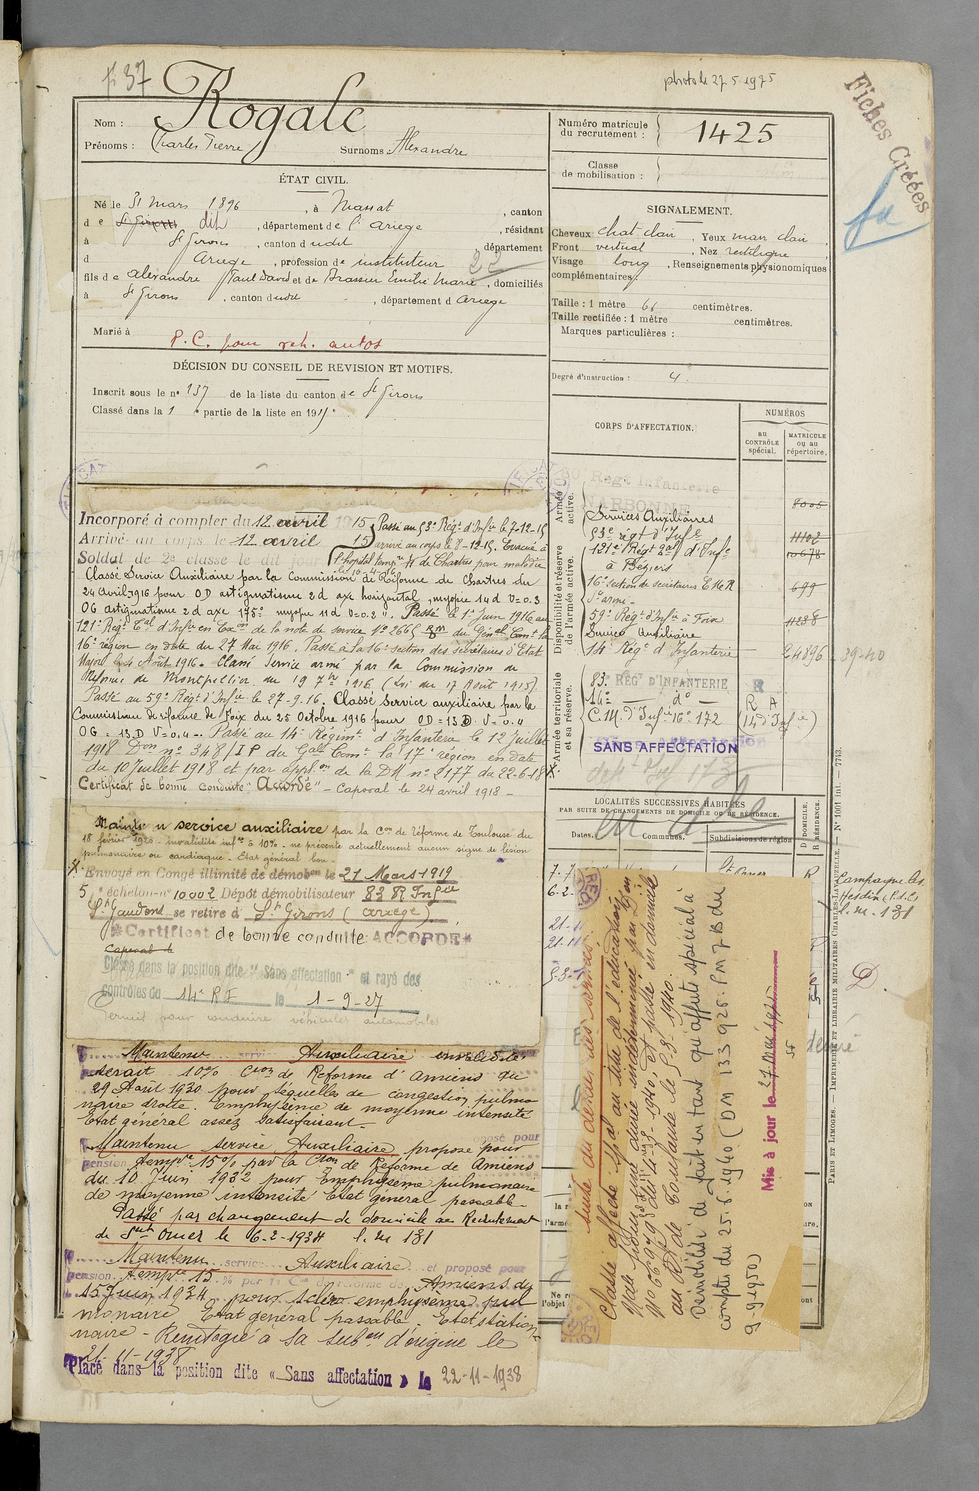 f° 37
photo le 27.5.1975
Fiches Créées
Nom : Rogale
Prénoms : Charles Pierre Surnoms Alexandre
Numéro matricule du recrutement : 1425
Classe de mobilisation :
ÉTAT CIVIL.
Né le 31 mars 1896, à Massat, canton
de St Girons dit, département de l'Ariege, résidant
à St Girons, canton dudit, département
d Ariege, profession de instituteur 22
fils de Alexandre Paul David et de Brassier Emilie Marie, domiciliés
à St Girons, canton dudit, département d Ariege
Marié à
P.C. pour veh. autos
SIGNALEMENT.
Cheveux chat clair, Yeux marr clair,
Front vertical, Nez rectiligne,
Visage long, Renseignements physionomiques
complémentaires:
Taille : 1 mètre 66 centimètres.
Taille rectifiée : 1 mètre centimètres.
Marques particulières :
Degré d'instruction : 4
DÉCISION DU CONSEIL DE REVISION ET MOTIFS.
Inscrit sous le n° 137 de la liste du canton de St Girons
Classé dans la 1 e partie de la liste en 1915.
Incorporé à compter du 12 avril 1915 Passé au 53e Régt d'Infie le 7-12-15
Arrivé au corps le 12 avril 15 arrivé au corps le 8-12-15. Evacué à
Soldat de 2e classe le dit jour l'hopital temp. de Chartres pour maladie
Classé Service Auxiliaire par la Commission de Réforme de Chartres du
24 avril 1916 pour OD astigmatisme 2d axe horizontal, myopie 14d V=0.3
OG astigmatisme 2d axe 175° myopie 11d V=0.2. Passé le 1er Juin 1916 au
121e Régt Tal d'Infie en Exon de la note de service No 2665 du Génal Comt la
16e région en date du 27 Mai 1916. Passé à la 16e section des secrétaires d'Etat
Major le 4 Août 1916 - Classé Service armé par la Commission de
Réforme de Montpellier du 19 7bre 1916 (Loi du 17 Août 1915)
Passé au 59e Régt d'Infie le 27-9-16. Classé service auxiliaire par la
Commission de réforme de Foix du 25 Octobre 1916 pour OD=13D V=0.4
OG=13D V=0.4 - Passé au 14e Régimt d'Infanterie le 12 Juillet
1918 Don no 348/IP du Gal Comt la 17e région en date
du 10 Juillet 1918 et par applon de la DM no 2177 du 22-6-18
Certificat de bonne conduite "Accordé" - Caporal le 24 avril 1918 -
Maintenu service auxiliaire par la Con de réforme de Toulouse du
18 février 1920 - invalidité infre à 10% - ne présente actuellement aucun signe de lésion
pulmonaire ou cardiaque - Etat général bon -
Envoyé en Congé illimité de démobon le 21 Mars 1919
5 échelon no 10002 Dépôt démobilisateur 83 RI Infie
St Gaudens se retire à St Girons (Ariège)
Certificat de bonne conduite ACCORDÉ
Caporal le
Classé dans la position dite "Sans affectation" et rayé des
contrôles du 14e RI le 1-9-27
Permis pour conduire véhicules automobiles
Maintenu service Auxiliaire invalidité
serait 10% Cion de Réforme d'Amiens du
29 Août 1930 pour séquelles de congestion pulmo
naire droite. Emphysème de moyenne intensité
Etat général assez satisfaisant.
Maintenu service Auxiliaire proposé pour
pension tempre 15% par la Cion de Réforme de Amiens
du 10 Juin 1932 pour Emphysème pulmonaire
de moyenne intensité Etat général passable.
Passé par changement de domicile au Recrutement
de Saint Omer le 6-2-1934 l.m 131
Maintenu service Auxiliaire et proposé pour
pension tempre 15% par la Con de réforme de Amiens du
15 Juin 1934 pour Scléro emphysème pul
monaire Etat général passable. Etat station
naire - Réintégré à sa subon d'origine le
21-11-1938
Placé dans la position dite « Sans affectation » le 22-11-1938
CORPS D'AFFECTATION.
NUMÉROS
au contrôle spécial.
matricule ou au répertoire.
Armée active.
Disponibilité et réserve de l'armée active.
Armée territoriale et sa réserve.
80 Régt Infanterie
NARBONNE 8005
Services Auxiliaires
53e régt d'Infie 11102
121e Régt Tal d'Infie 10678
à Béziers
16e section de secrétaires E.M.R 699
S. armé
59e Régt d'Infie à Foix 11238
Service Auxiliaire
14e Régt d'Infanterie 24896 39-40
83e RÉGT D'INFANTERIE R
14e do R A
C.M. d'Infie 16e 172 (14 d'Infie)
SANS AFFECTATION
LOCALITÉS SUCCESSIVES HABITÉES
PAR SUITE DE CHANGEMENTS DE DOMICILE OU DE RÉSIDENCE.
Dates. Communes. Subdivisions de région D. DOMICILE. R. RÉSIDENCE.
St Omer R
Campagne les
Hesdin (P.d.C)
l.m. 131
D.
suite du détail des services
Classe affecté spal au titre de l'éducation
Demobilisé de fait en tant qu'affecté spécial à
compter du 25.6.1940 (DM 133 926. PM 7 B du
9.9.1950)
Mis à jour le 27 mai 1975
PARIS ET LIMOGES. — IMPRIMERIE ET LIBRAIRIE MILITAIRES CHARLES-LAVAUZELLE. — N° 1001 int. — 7743.